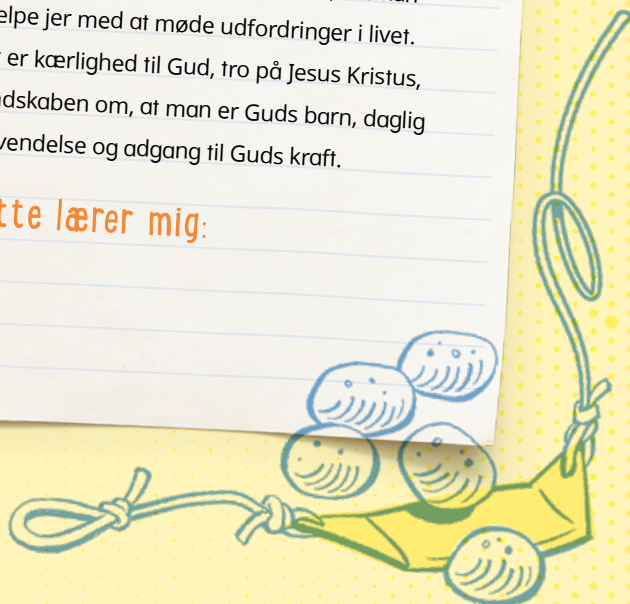 elpe jer med at møde udfordringer i livet.
er kærlighed til Gud, tro på Jesus Kristus,
dskaben om, at man er Guds barn, daglig
vendelse og adgang til Guds kraft.
tte lærer mig: